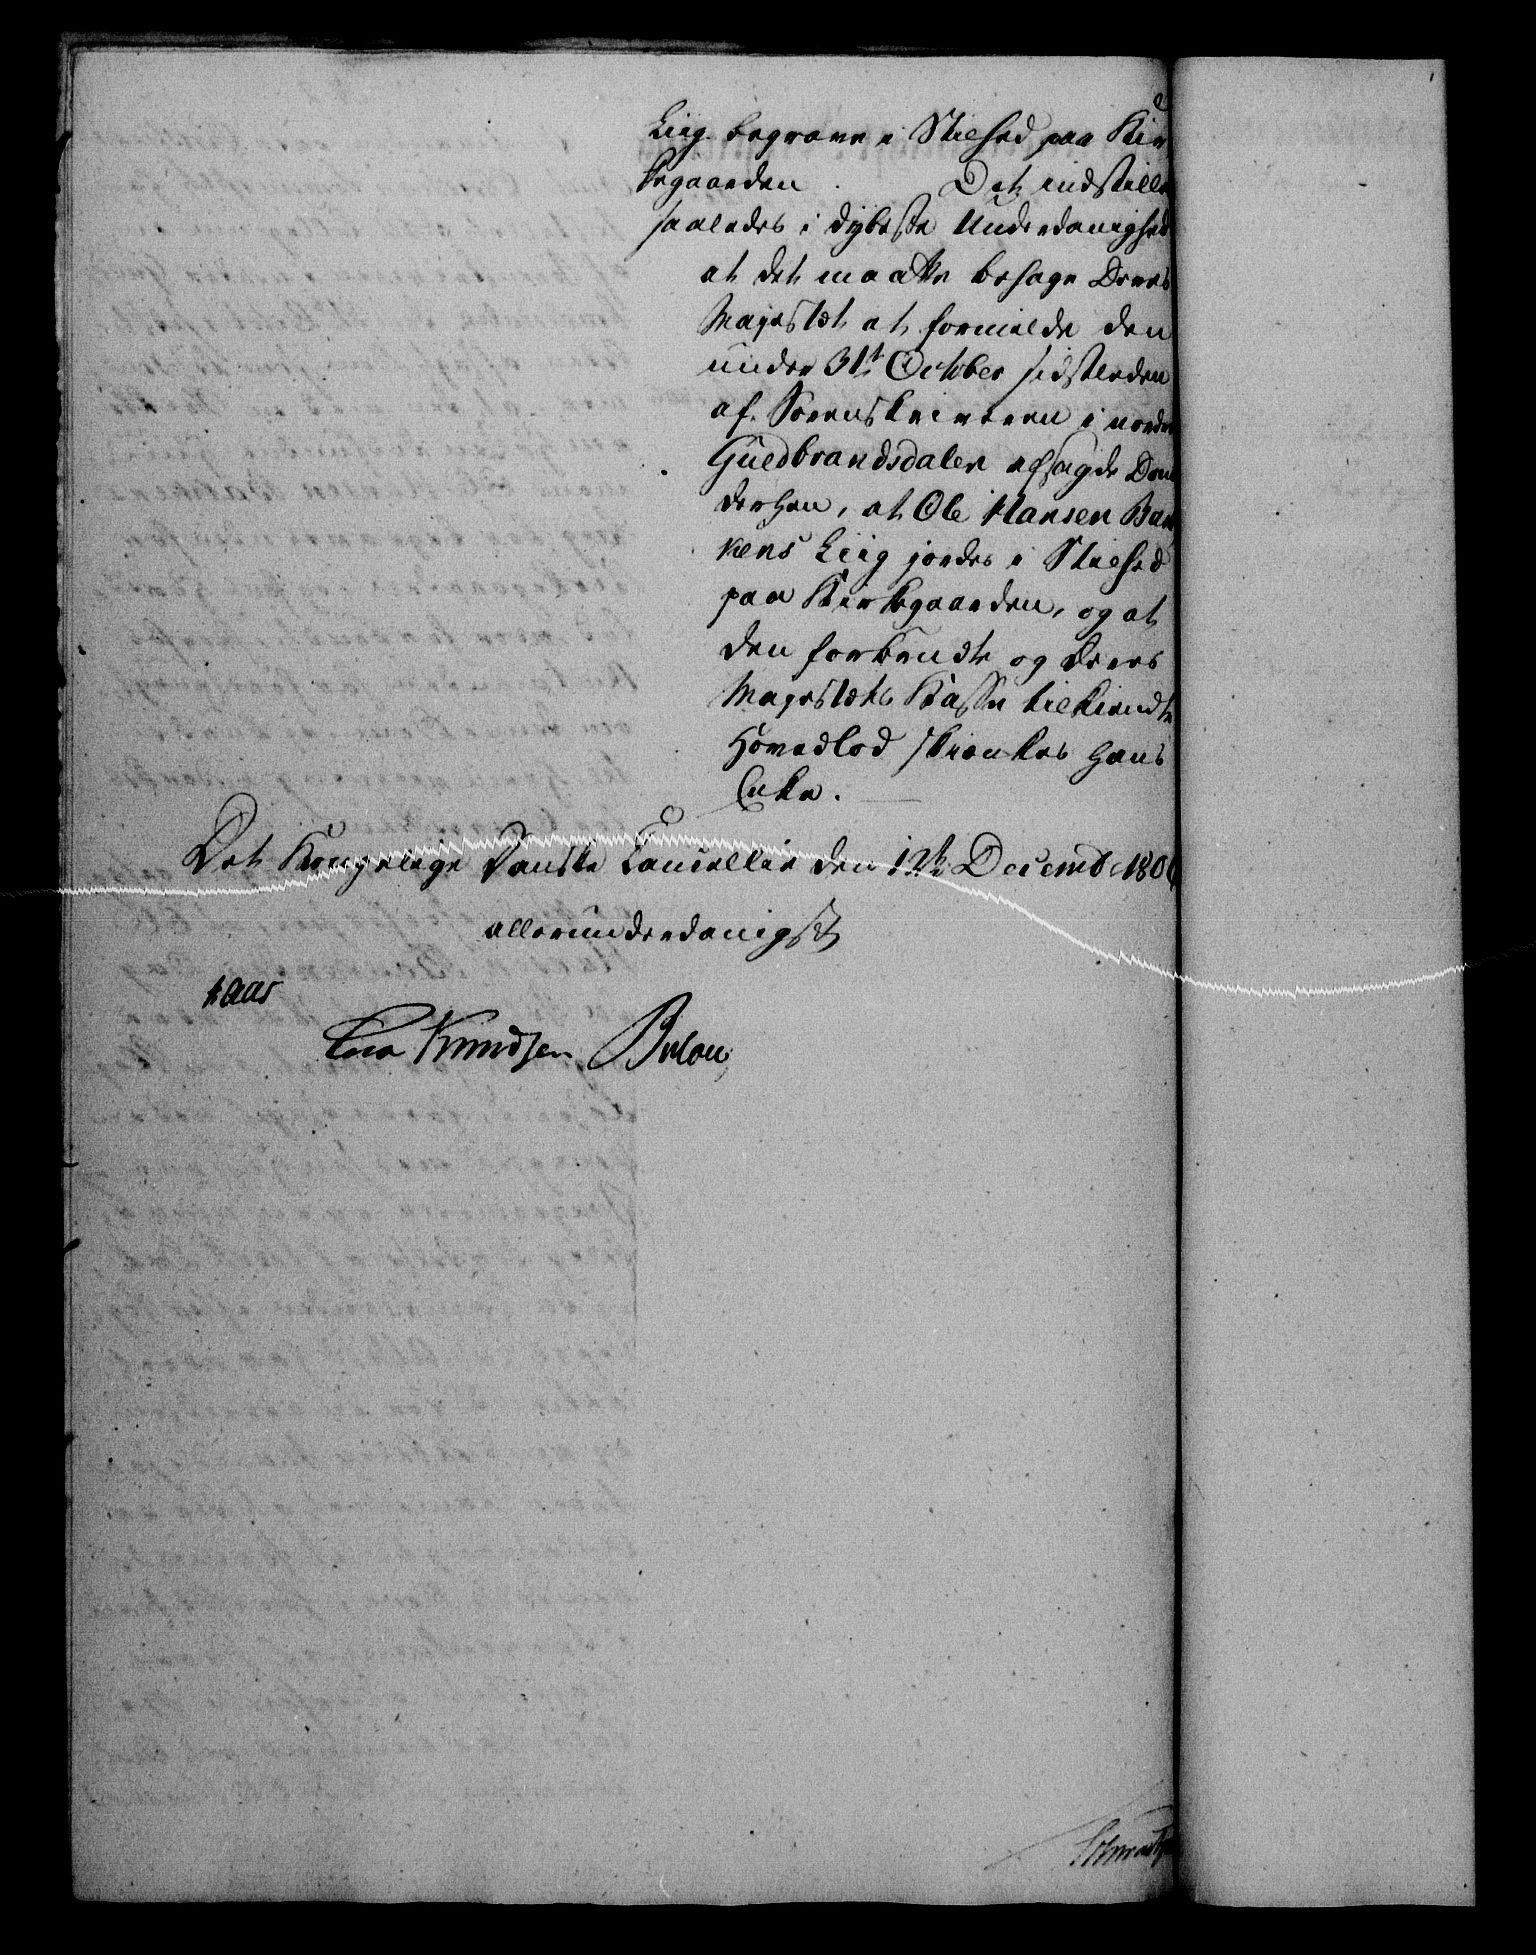 Liig begrave i Stilhed paa Kir
kegaarden. Det indstilles
saaledes i dybeste Underdanighed
at det maatte behage Deres
Majestæt at formilde den
under 31t October sidstleden
af Sorenskriveren i nordre
Guldbrandsdalen afsagde Dom
derhen, at Ole Hansen Bak
kens Liig jordes i Stilhed
paa Kirkegaarden, og at
den forbrudte og Deres
Majestæts Kasse tilkiendte
Hovedlod skiænkes hans
Enke.
Det Kongelige Danske Cancellie den 12te Decembr 180
allerunderdanigst
Kaas
Knudsen Bülow